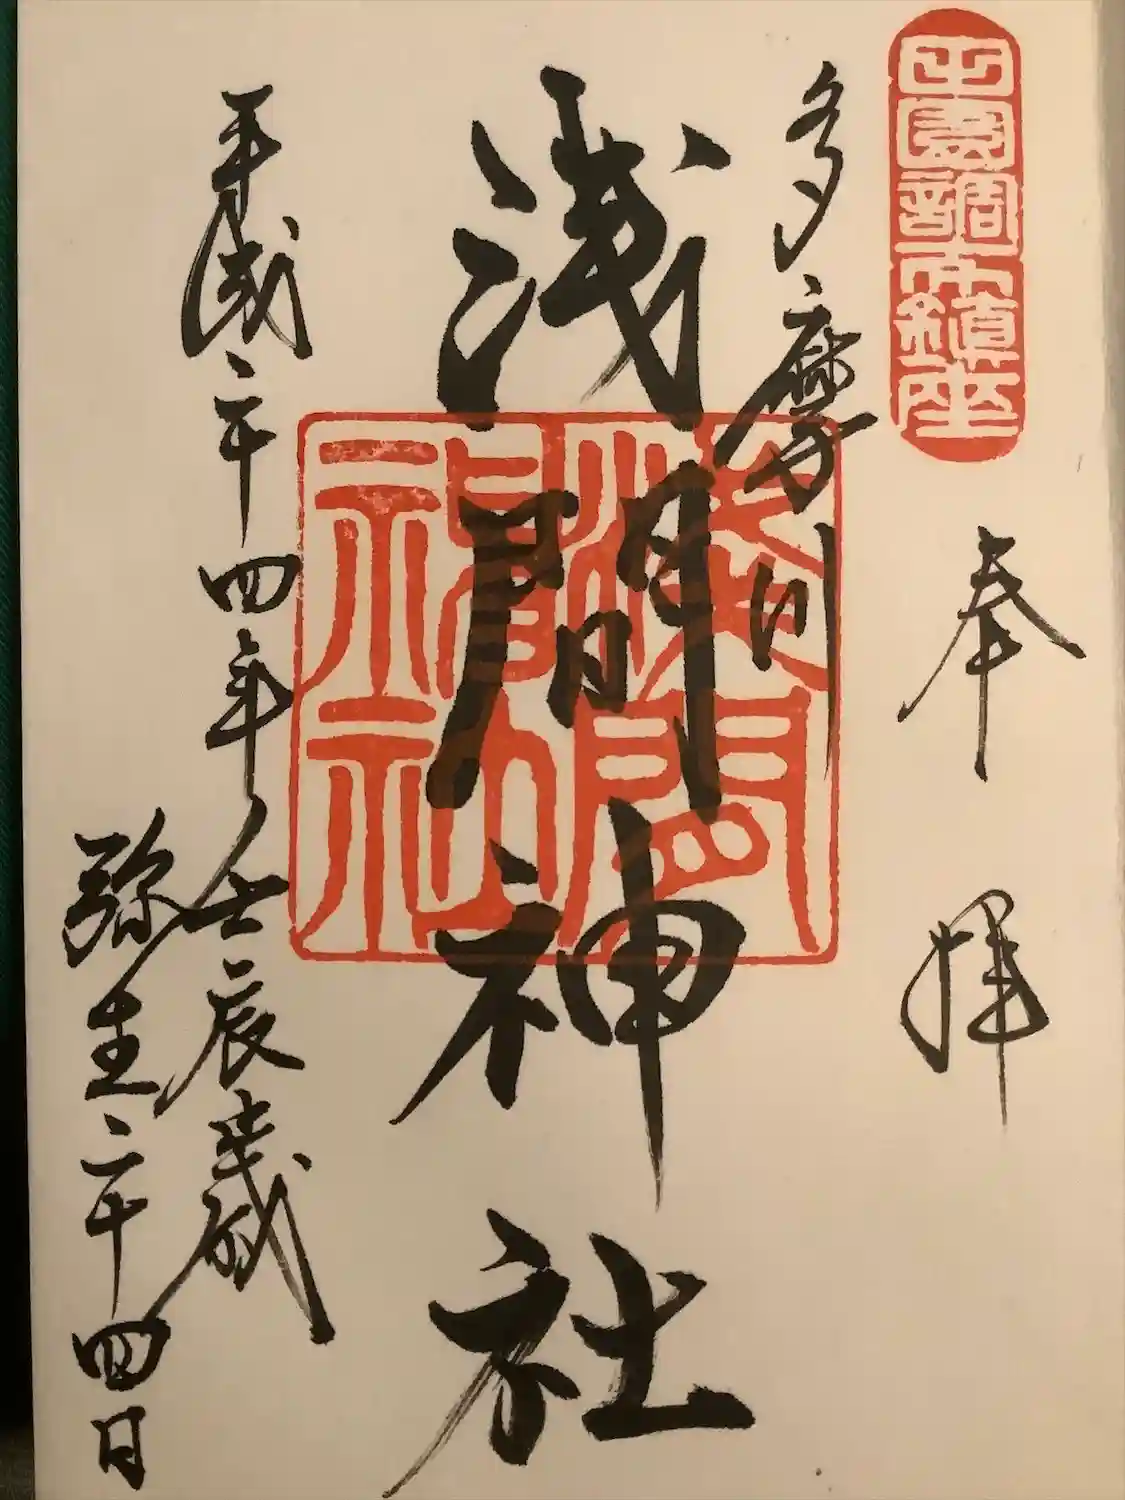 田園調布鎮座
奉拝
多摩川
浅間神社
淺間
神社
平成二十四年壬辰歳
弥生二十四日